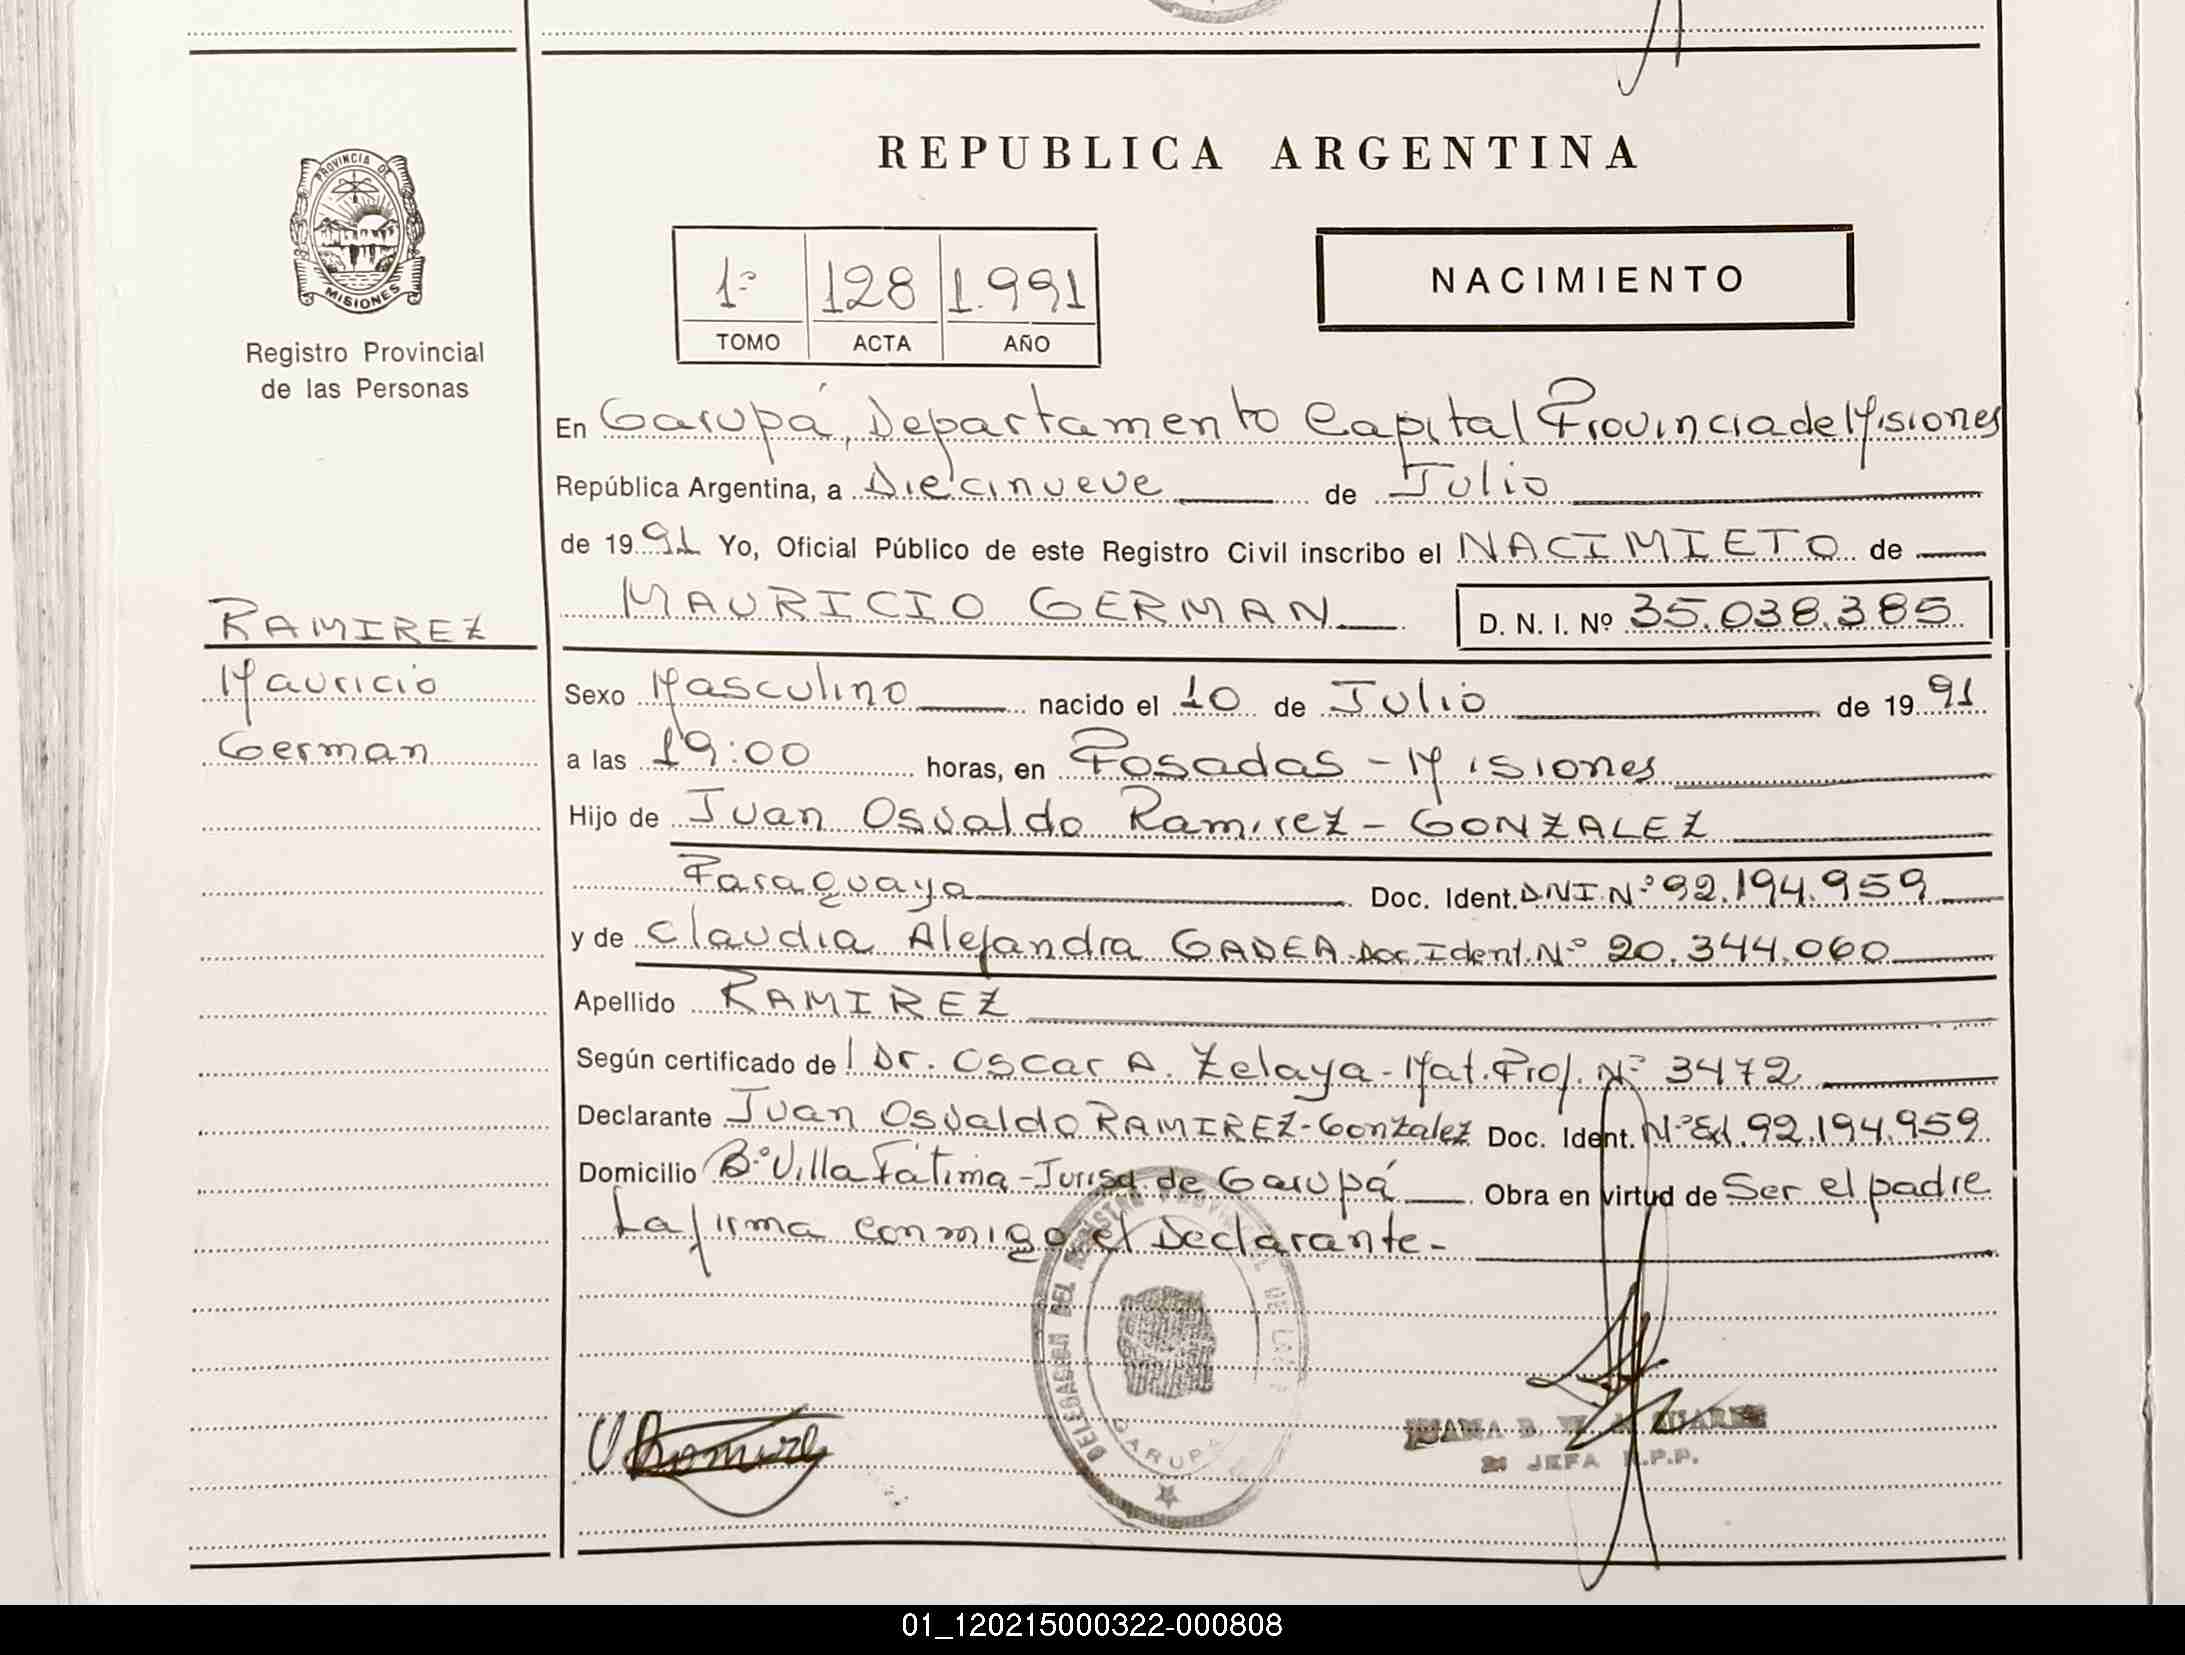 REPUBLICA ARGENTINA
PROVINCIA DE
MISIONES
Registro Provincial
de las Personas
1º 128 1.991
TOMO ACTA AÑO
NACIMIENTO
En Garupá, Departamento Capital Provincia de Misiones
República Argentina, a Diecinueve de Julio
de 1991 Yo, Oficial Público de este Registro Civil inscribo el NACIMIETO de
MAURICIO GERMAN D. N. I. Nº 35.038.385
RAMIREZ
Mauricio
German
Sexo Masculino nacido el 10 de Julio de 1991
a las 19:00 horas, en Posadas - Misiones
Hijo de Juan Osvaldo Ramirez - GONZALEZ
Paraguaya Doc. Ident. DNI Nº 92.194.959
y de Claudia Alejandra GADEA Doc Ident. Nº 20.344.060
Apellido RAMIREZ
Según certificado de l Dr. Oscar A. Zelaya - Mat. Prof. Nº 3472
Declarante Juan Osvaldo RAMIREZ - Gonzalez Doc. Ident. Nº 92.194.959
Domicilio Bº Villa Fátima - de Garupá Obra en virtud de Ser el padre
La firma conmigo el Declarante -
DELEGACION DEL REGISTRO PROVINCIAL DE LAS
GARUPA
JEFA R.P.P.
01_120215000322-000808